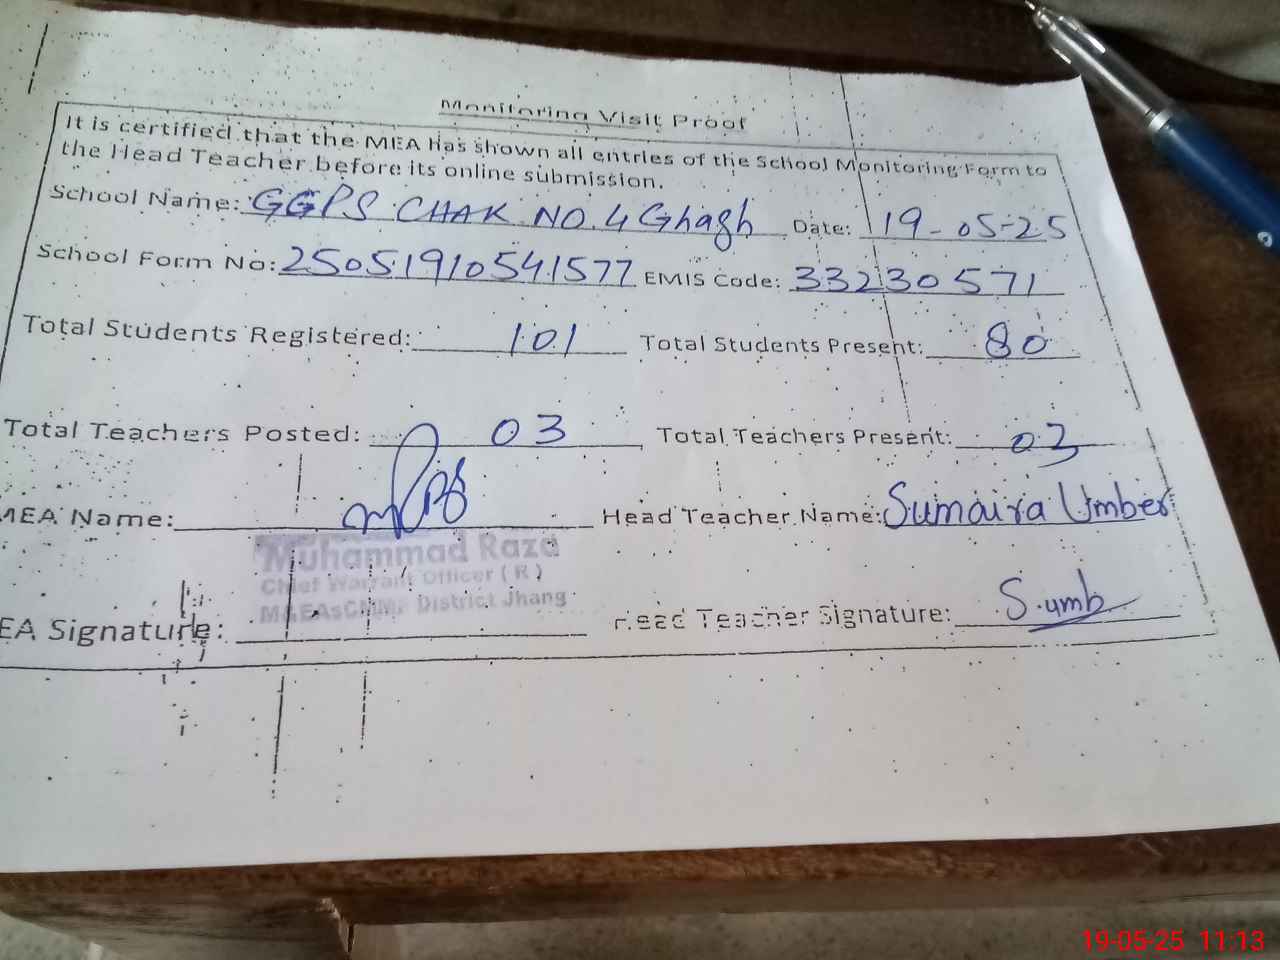 Monitoring Visit Proof
It is certified that the MEA has shown all entries of the School Monitoring Form to
the Head Teacher before its online submission.
School Name: GGPS CHAK NO. 4 Ghagh Date: 19-05-25
School Form No: 25051910541577 EMIS Code: 33230571
Total Students Registered: 101 Total Students Present: 80
Total Teachers Posted: 03 Total Teachers Present: 03
MEA Name: Head Teacher Name: Sumaira Umber
Muhammad Raza
Chief Warrant Officer ( R )
M&EAsCMMF District Jhang
EA Signature: Head Teacher Signature: S.umb
19-05-25 11:13